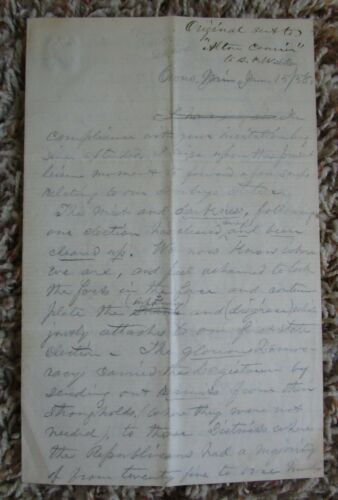 Original sent to
"Alton Courier"
to B. F.
Orono, Minn, Jan. 15/58.
In
compliance with your invitation by
since extended, I seize upon the first
leisure moment to forward a few
relating to our
The mist and darkness, following
our election has cleared and been
cleared up. We now know where
we are, and feel ashamed to look
the facts in the face and contem
plate the and (disgrace) which
justly attaches to our first state
election – The glorious Democ
racy carried the by
sending out from their
strongholds, (where they were not
needed,) to those Districts where
the Republicans had a majority
of from twenty five to one hundred